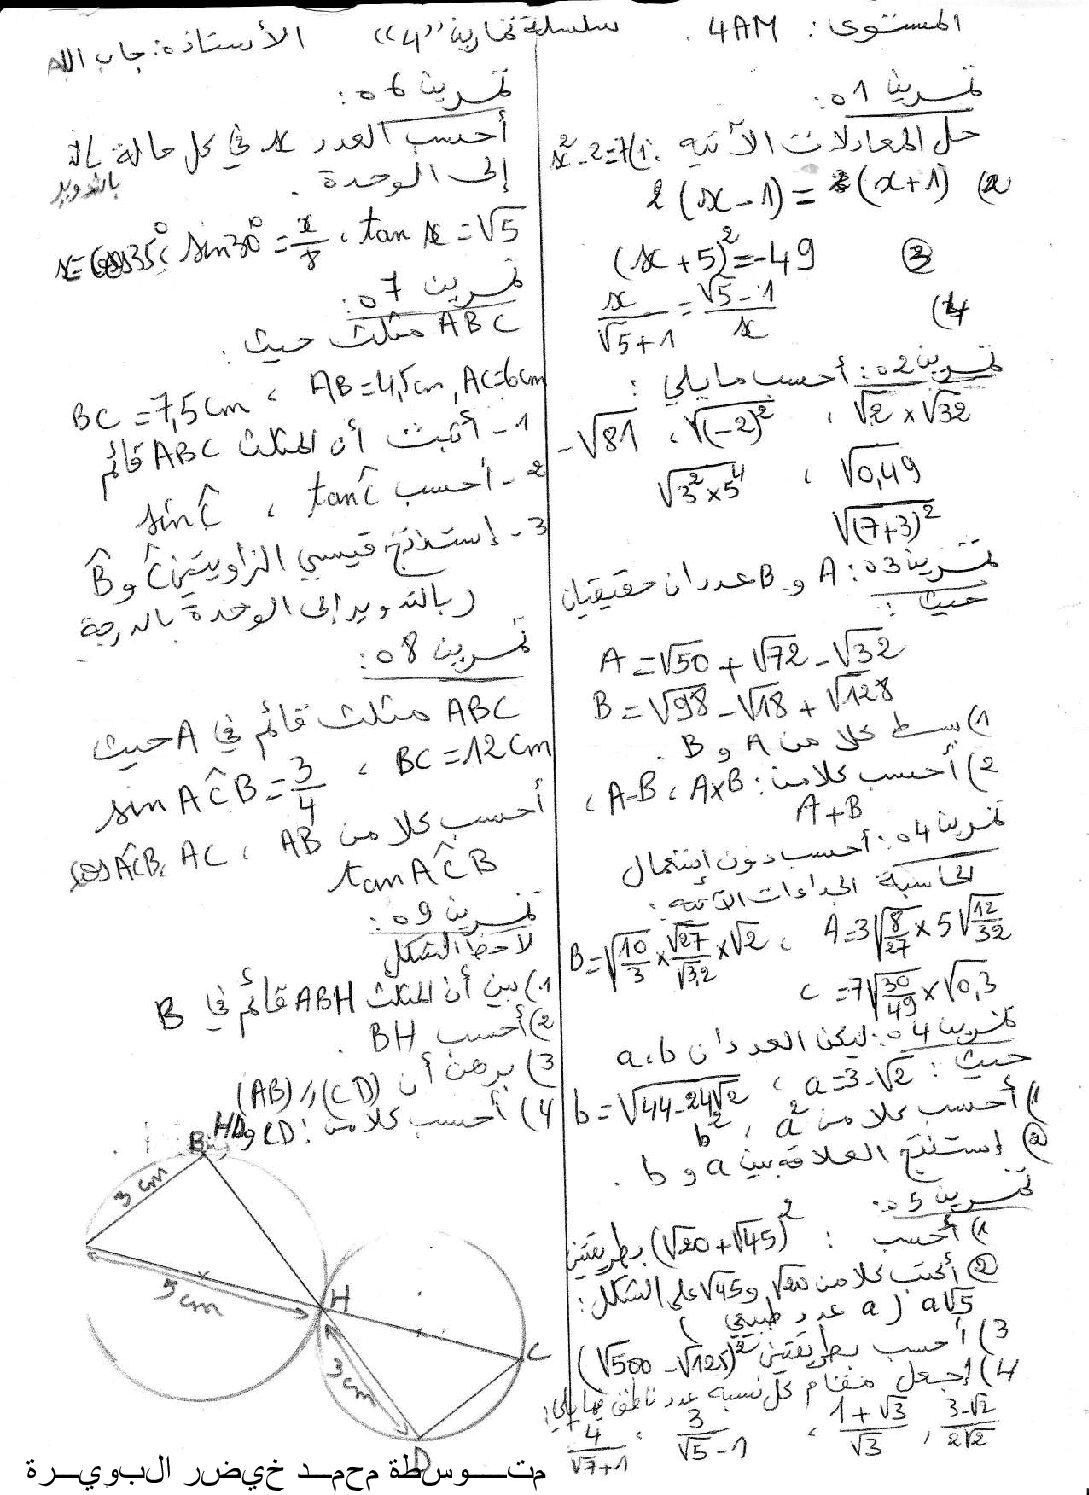 المستوى: 4AM. سلسلة تمارين "4" الأستاذة: جاب الله
تمرين 01:
حل المعادلات الآتية: 1) x²-2=7
2) 2(x-1)=(x+1)
③ (x+5)²=-49
4) x/(√5+1) = (√5-1)/x
تمرين 02: أحسب ما يلي:
√2×√32 ، √(-2)² ، -√81
√0,49 ، √3²×5⁴
√(7+3)²
تمرين 03: A و B عددان حقيقيان
حيث:
A=√50+√72-√32
B=√98-√18+√128
1) بسط كلا من A و B.
2) أحسب كلا من: A×B ، A-B ،
A+B
تمرين 04: أحسب دون إستعمال
الحاسبة الجداءات الآتية:
A=3√(8/27)×5√(12/32) ، B=√(10/3)×√27/√3,2×√2
C=7√(30/49)×√0,3
تمرين 04: ليكن العددان a،b
حيث: a=3-√2 ، b=√(44-24√2)
1) أحسب كلا من a² ، b²
② إستنتج العلاقة بين a و b.
تمرين 05:
1) أحسب: (√20+√45)² بطريقتين
② أكتب كلا من √20 و √45 على الشكل:
a√5 (a عدد طبيعي)
3) أحسب بطريقتين (√500-√125)²
4) إجعل مقام كل نسبة عدد ناطق فيما يلي:
(3-√2)/(2√2) ، (1+√3)/√3 ، 3/(√5-1) ، 4/(√7+1)
تمرين 06:
أحسب العدد x في كل حالة
بالتدوير
إلى الوحدة.
tan x=√5 ، sin30°=x/8 ، x=cos35°
تمرين 07:
ABC مثلث حيث:
BC=7,5cm ، AB=4,5cm , AC=6cm
1- أثبت أن المثلث ABC قائم
2- أحسب tanĈ ، sinĈ
3- إستنتج قيسي الزاويتين Ĉ و B̂
(بالتدوير إلى الوحدة بالدرجة
تمرين 08:
ABC مثلث قائم في A حيث
BC=12cm ، sinAĈB=3/4
أحسب كلا من AB ، AC ، cosAĈB
tanAĈB
تمرين 09:
لاحظ الشكل
1) بين أن المثلث ABH قائم في B
②) أحسب BH.
3) برهن أن (AB)//(CD)
4) أحسب كلا من: CD و HD
B
3cm
5cm
H
C
3cm
D
متوسطة محمد خيضر البويرة